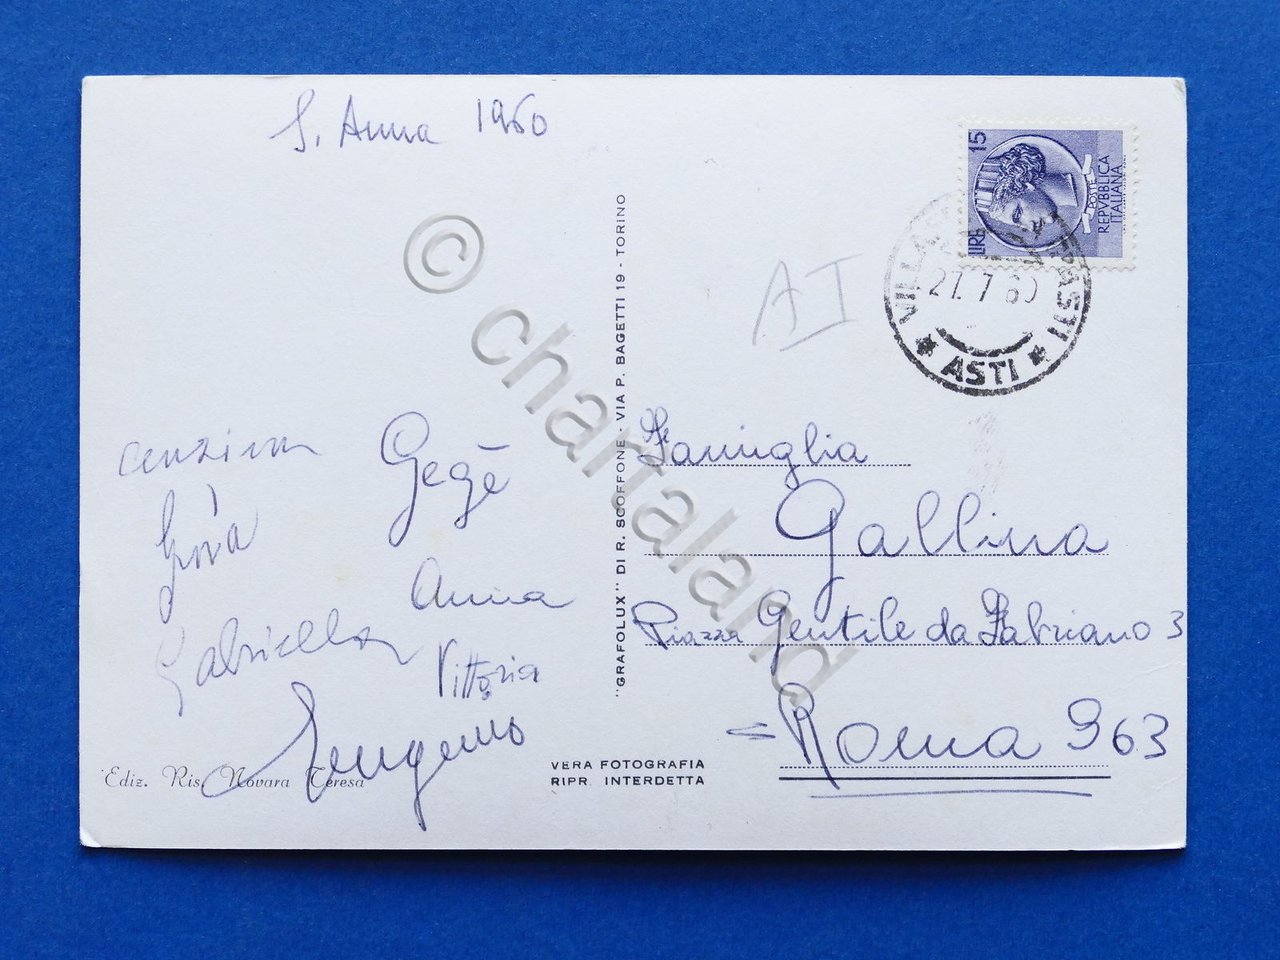 S. Anna 1960
Gegè
Anna
Gabriella
Vittoria
Ediz. Ris. Novara Teresa
"GRAFOLUX" DI R. SCOFFONE - VIA P. BAGETTI 19 - TORINO
VERA FOTOGRAFIA
RIPR. INTERDETTA
LIRE 15
POSTE
REPVBBLICA
ITALIANA
27.7.60
* ASTI *
AI
Famiglia
Gallina
Piazza Gentile da Fabriano 3
= Roma 963
© chartaland